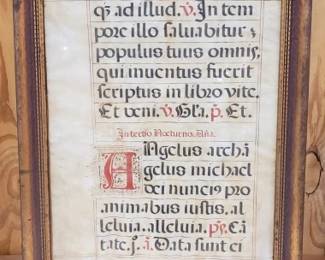 qꝫ ad illud. ℣. In tem
poꝛe illo saluabitur ⁊
populus tuus omnis,
qui inuentus fuerit
scriptus in libꝛo vite.
Et veni. ℣. Gľa. p̄. Et.
In tertio Nocturno. Aña.
Angelus archã
gelus michael
dei nuncius pꝛo
animabus iustis. al
leluia. alleluia. ps. Cã
tate. ſ. ã. Data sunt ei